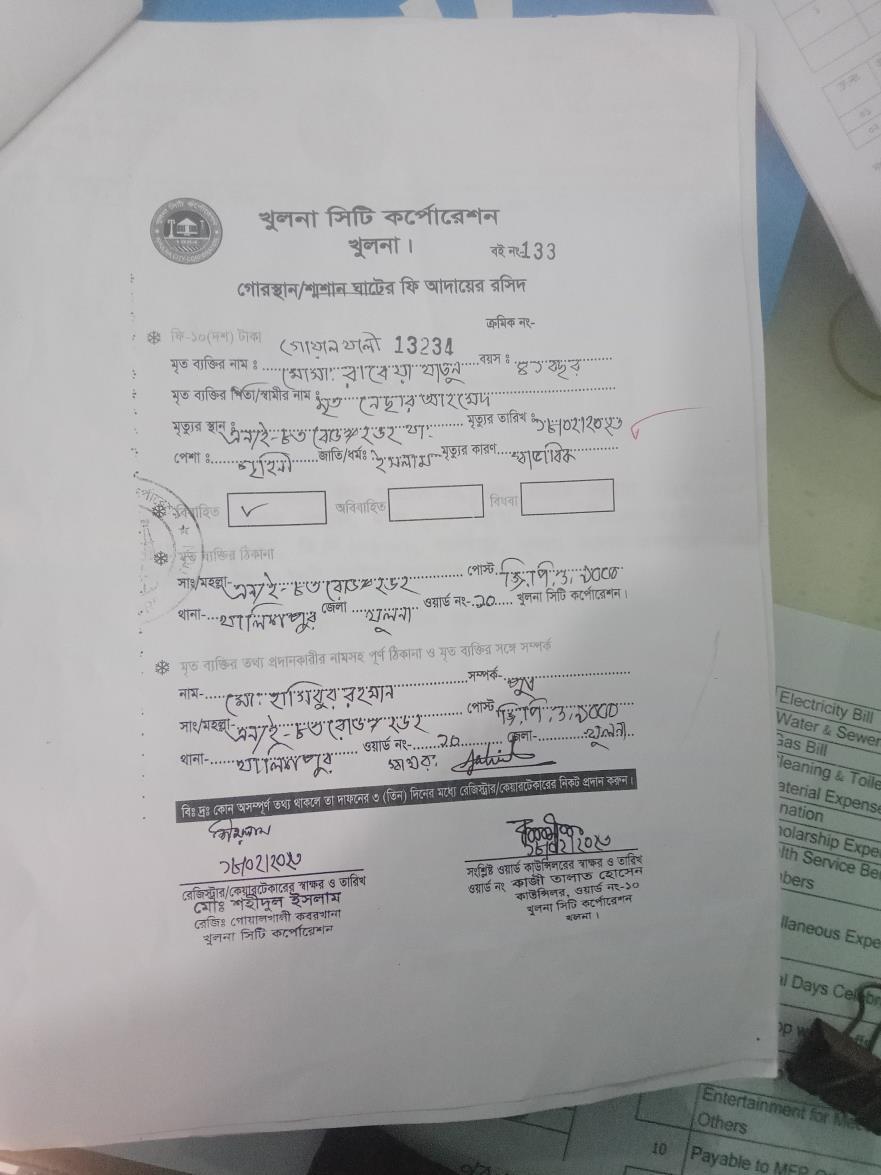 খুলনা সিটি কর্পোরেশন
খুলনা।
বই নং-133
গোরস্থান/শ্মশান ঘাটের ফি আদায়ের রসিদ
ক্রমিক নং-
ফি-১০(দশ) টাকা
13234
মৃত ব্যক্তির নাম : মোসা: রাবেয়া খাতুন বয়স : ৪৭ বছর
মৃত ব্যক্তির পিতা/স্বামীর নাম : মৃত নেছার আহমেদ
মৃত্যুর স্থান : এন/ই-৮৩ রোড মৃত্যুর তারিখ :
পেশা : গৃহিনী জাতি/ধর্ম: ইসলাম মৃত্যুর কারণ স্বাভাবিক
বিবাহিত ✓ অবিবাহিত বিধবা
মৃত ব্যক্তির ঠিকানা
সাং/মহল্লা- এন/ই-৮৩ রোড পোস্ট- জি,পি,ও, ৯০০০
থানা- খালিশপুর জেলা খুলনা ওয়ার্ড নং- ১০ খুলনা সিটি কর্পোরেশন।
মৃত ব্যক্তির তথ্য প্রদানকারীর নামসহ পূর্ণ ঠিকানা ও মৃত ব্যক্তির সঙ্গে সম্পর্ক
নাম- মো: হাফিজুর রহমান সম্পর্ক- পুত্র
সাং/মহল্লা- এন/ই-৮৩ রোড পোস্ট- জি,পি,ও, ৯০০০
থানা- খালিশপুর ওয়ার্ড নং- ১০ জেলা- খুলনা
স্বাক্ষর:
বিঃ দ্রঃ কোন অসম্পূর্ণ তথ্য থাকলে তা দাফনের ৩ (তিন) দিনের মধ্যে রেজিস্ট্রার/কেয়ারটেকারের নিকট প্রদান করুন।
রেজিস্ট্রার/কেয়ারটেকারের স্বাক্ষর ও তারিখ
মোঃ শহীদুল ইসলাম
রেজিঃ গোয়ালখালী কবরখানা
খুলনা সিটি কর্পোরেশন
সংশ্লিষ্ট ওয়ার্ড কাউন্সিলরের স্বাক্ষর ও তারিখ
ওয়ার্ড নং কাজী তালাত হোসেন
কাউন্সিলর, ওয়ার্ড নং-১০
খুলনা সিটি কর্পোরেশন
খুলনা।
Electricity Bill
Water & Sewer
Gas Bill
Cleaning & Toile
aterial Expense
nation
holarship Expe
lth Service Be
bers
llaneous Expe
l Days Celebr
Entertainment for
Others
10 Payable to